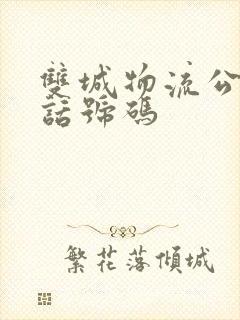 雙城物流公
話號碼
繁花落傾城